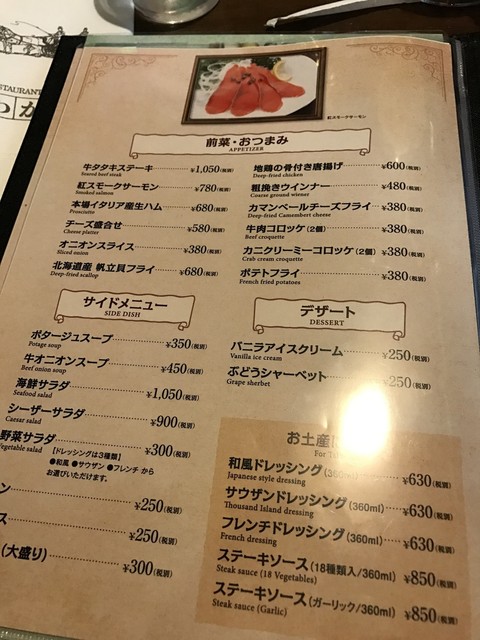 STAURANT
紅スモークサーモン
前菜・おつまみ
APPETIZER
牛タタキステーキ ¥1,050(税別)
Seared beef steak
紅スモークサーモン ¥780(税別)
Smoked salmon
本場イタリア産生ハム ¥680(税別)
Prosciutto
チーズ盛合せ ¥580(税別)
Cheese platter
オニオンスライス ¥380(税別)
Sliced onion
北海道産 帆立貝フライ ¥680(税別)
Deep-fried scallop
地鶏の骨付き唐揚げ ¥600(税別)
Deep-fried chicken
粗挽きウインナー ¥480(税別)
Coarse ground wiener
カマンベールチーズフライ ¥380(税別)
Deep-fried Camembert cheese
牛肉コロッケ(2個) ¥380(税別)
Beef croquette
カニクリーミーコロッケ(2個) ¥380(税別)
Crab cream croquette
ポテトフライ ¥380(税別)
French fried potatoes
サイドメニュー
SIDE DISH
ポタージュスープ ¥350(税別)
Potage soup
牛オニオンスープ ¥450(税別)
Beef onion soup
海鮮サラダ ¥1,050(税別)
Seafood salad
シーザーサラダ ¥900(税別)
Caesar salad
野菜サラダ ¥300(税別)
Vegetable salad
【ドレッシングは3種類】
●和風 ●サウザン ●フレンチ から
お選びいただけます。
ン ¥250(税別)
ス ¥250(税別)
(大盛り) ¥300(税別)
デザート
DESSERT
バニラアイスクリーム ¥250(税別)
Vanilla ice cream
ぶどうシャーベット ¥250(税別)
Grape sherbet
お土産
For
和風ドレッシング(360ml) ¥630(税別)
Japanese style dressing
サウザンドレッシング(360ml) ¥630(税別)
Thousand Island dressing
フレンチドレッシング(360ml) ¥630(税別)
French dressing
ステーキソース(18種類入/360ml) ¥850(税別)
Steak sauce (18 Vegetables)
ステーキソース(ガーリック/360ml) ¥850(税別)
Steak sauce (Garlic)